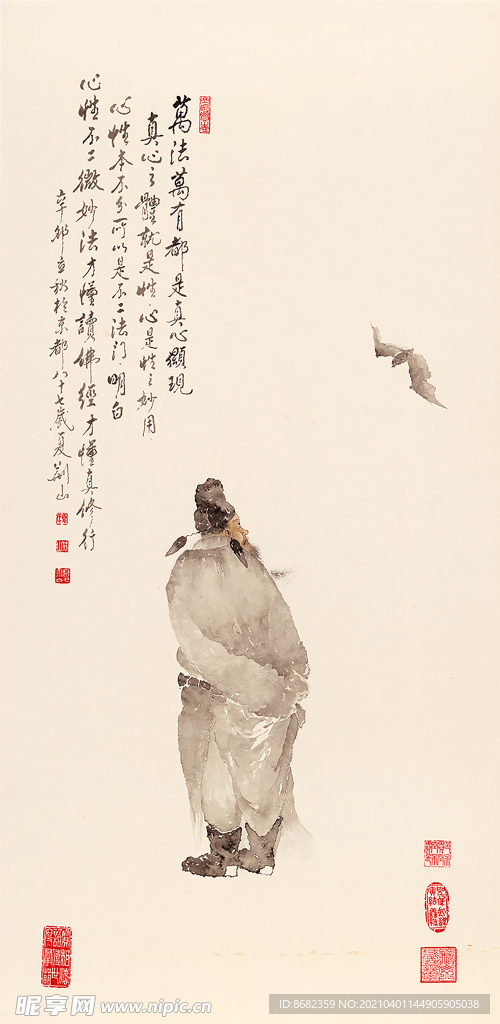 萬法萬有都是真心顯現
真心之體就是性心是性之妙用
心性本不分所以是不二法门明白
心性不二微妙法才懂讀佛經才懂真修行
辛卯立秋於京都八十七歲夏荆山
昵享网 www.nipic.cn
ID:8682359 NO:20210401144905905038